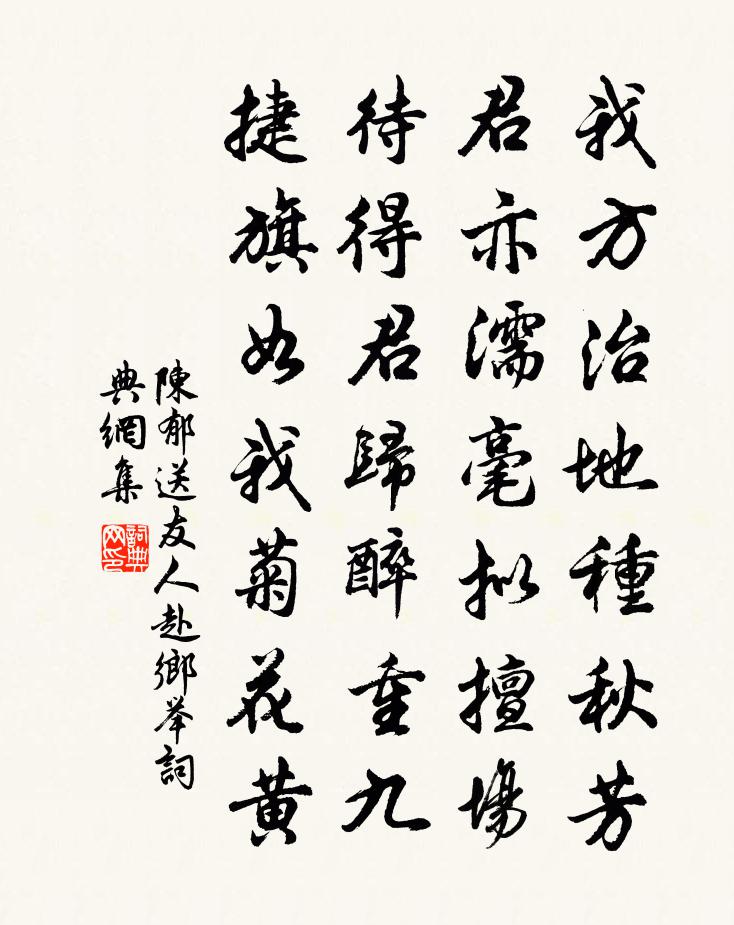 我方治地種秋芳
君亦濡毫擬擅場
待得君歸醉重九
捷旗如我菊花黄
陳郁送友人赴鄉举詞
典網集
詞典
网印